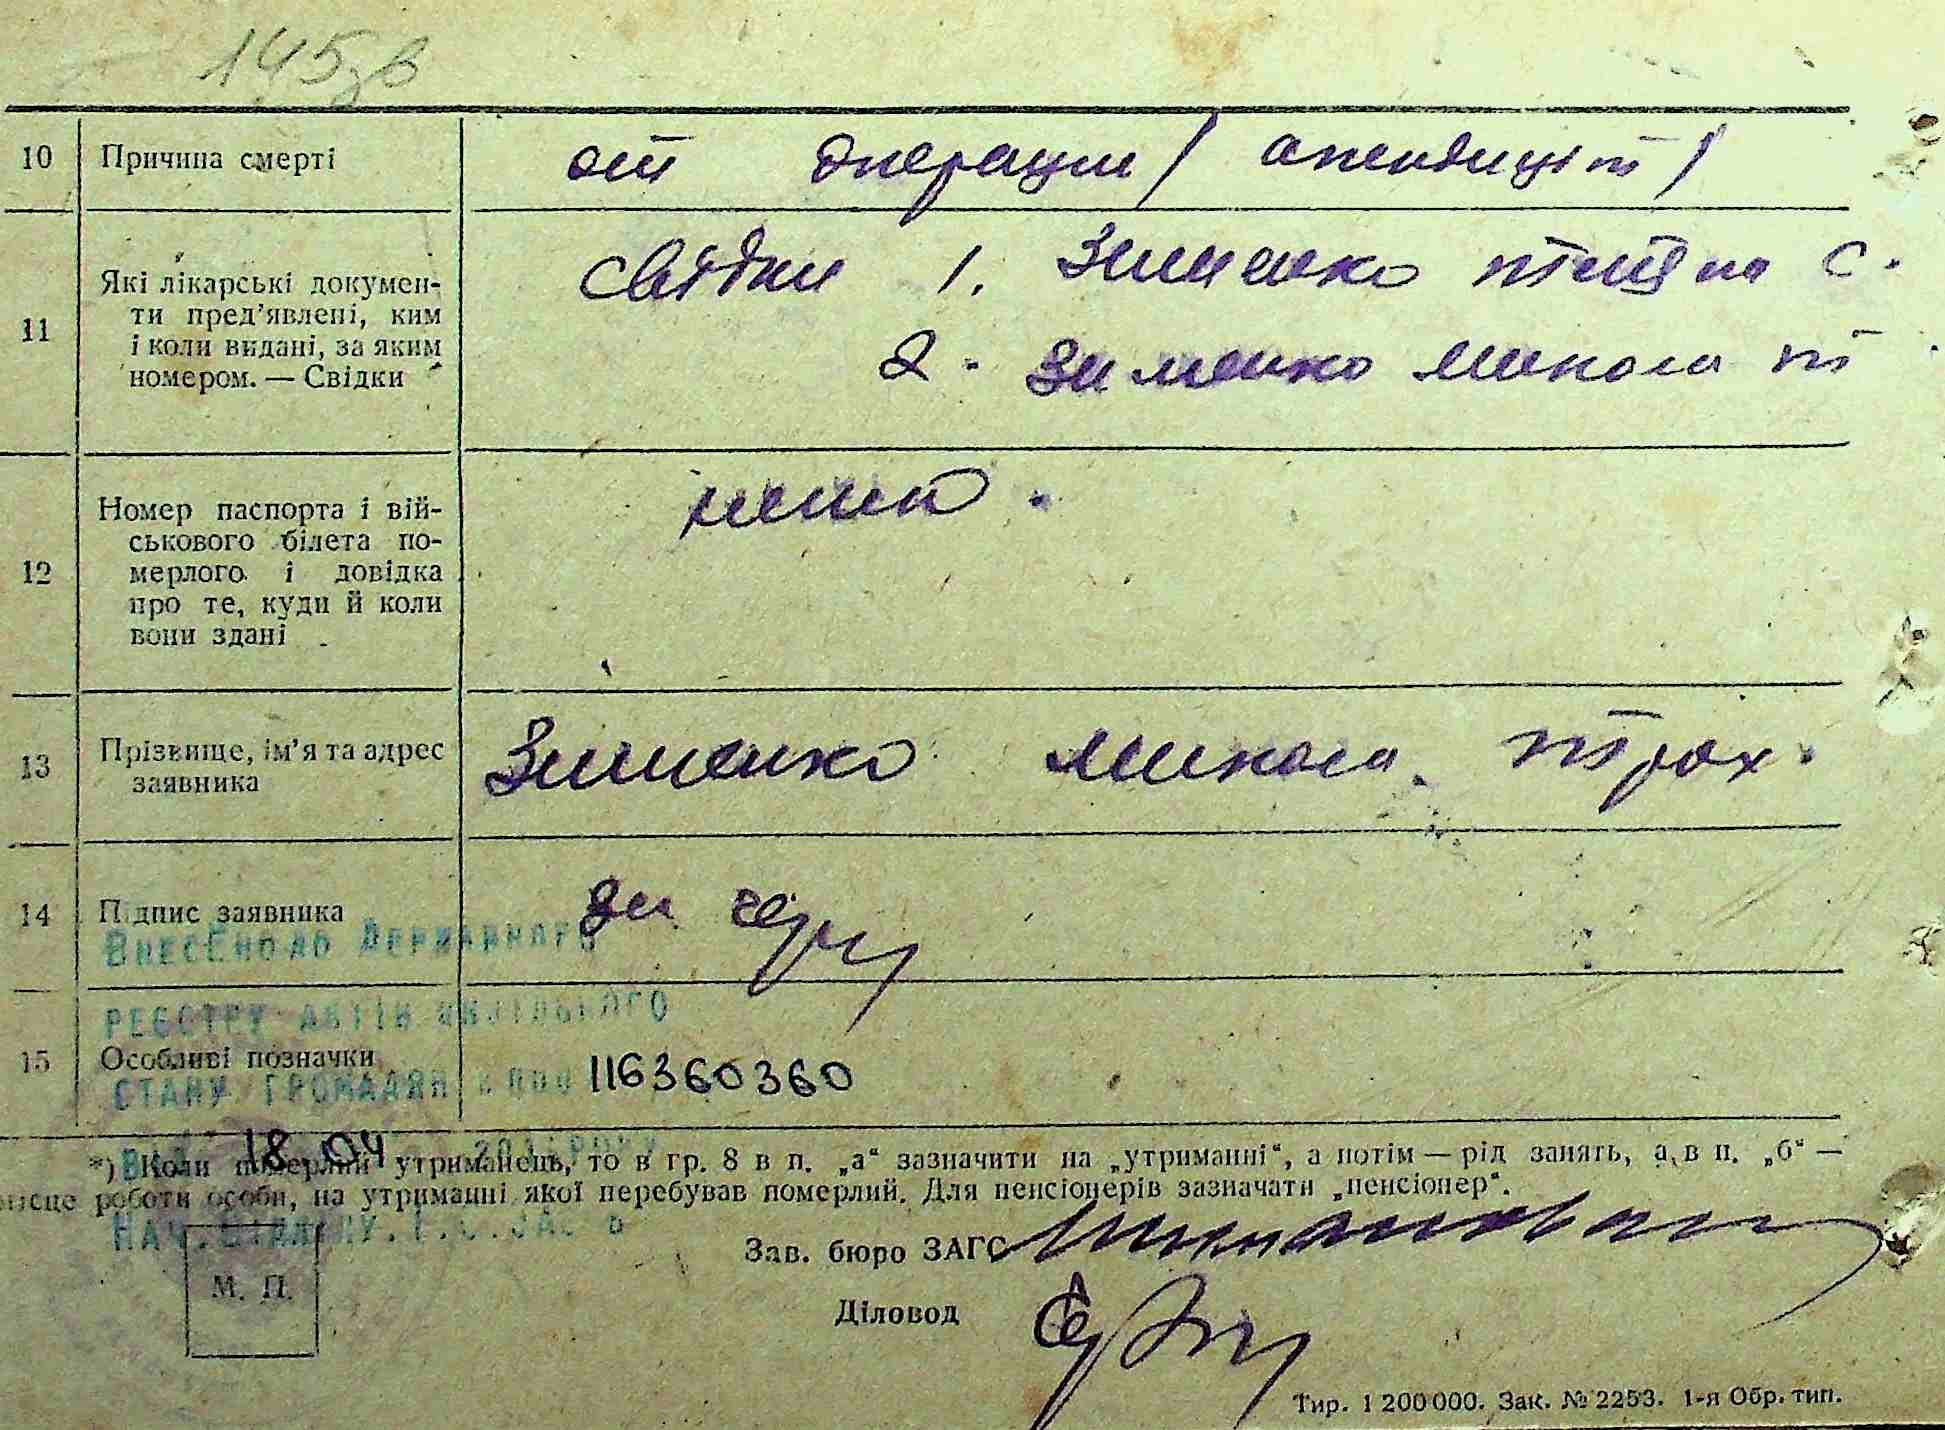 145зв
10 Причина смерті от операции / апендиціт /
11 Які лікарські докумен-
ти пред'явлені, ким
і коли видані, за яким
номером. — Свідки
свідки 1. Зименко С.
2. Зименко Микола т
12 Номер паспорта і вій-
ськового білета по-
мерлого і довідка
про те, куди й коли
вони здані
13 Прізвище, ім'я та адрес
заявника
Зименко Микола трох.
14 Підпис заявника
Внесено до Державного
реєстру актів цивільного
15 Особливі позначки 116360360
стану громадян
18 04
*) Коли померлий утриманець, то в гр. 8 в п. „а“ зазначити на „утриманні“, а потім — рід занять, а в п. „б“ —
місце роботи особи, на утриманні якої перебував померлий. Для пенсіонерів зазначати „пенсіонер“.
М. П.
Зав. бюро ЗАГС
Діловод
Тир. 1 200 000. Зак. № 2253. 1-я Обр. тип.